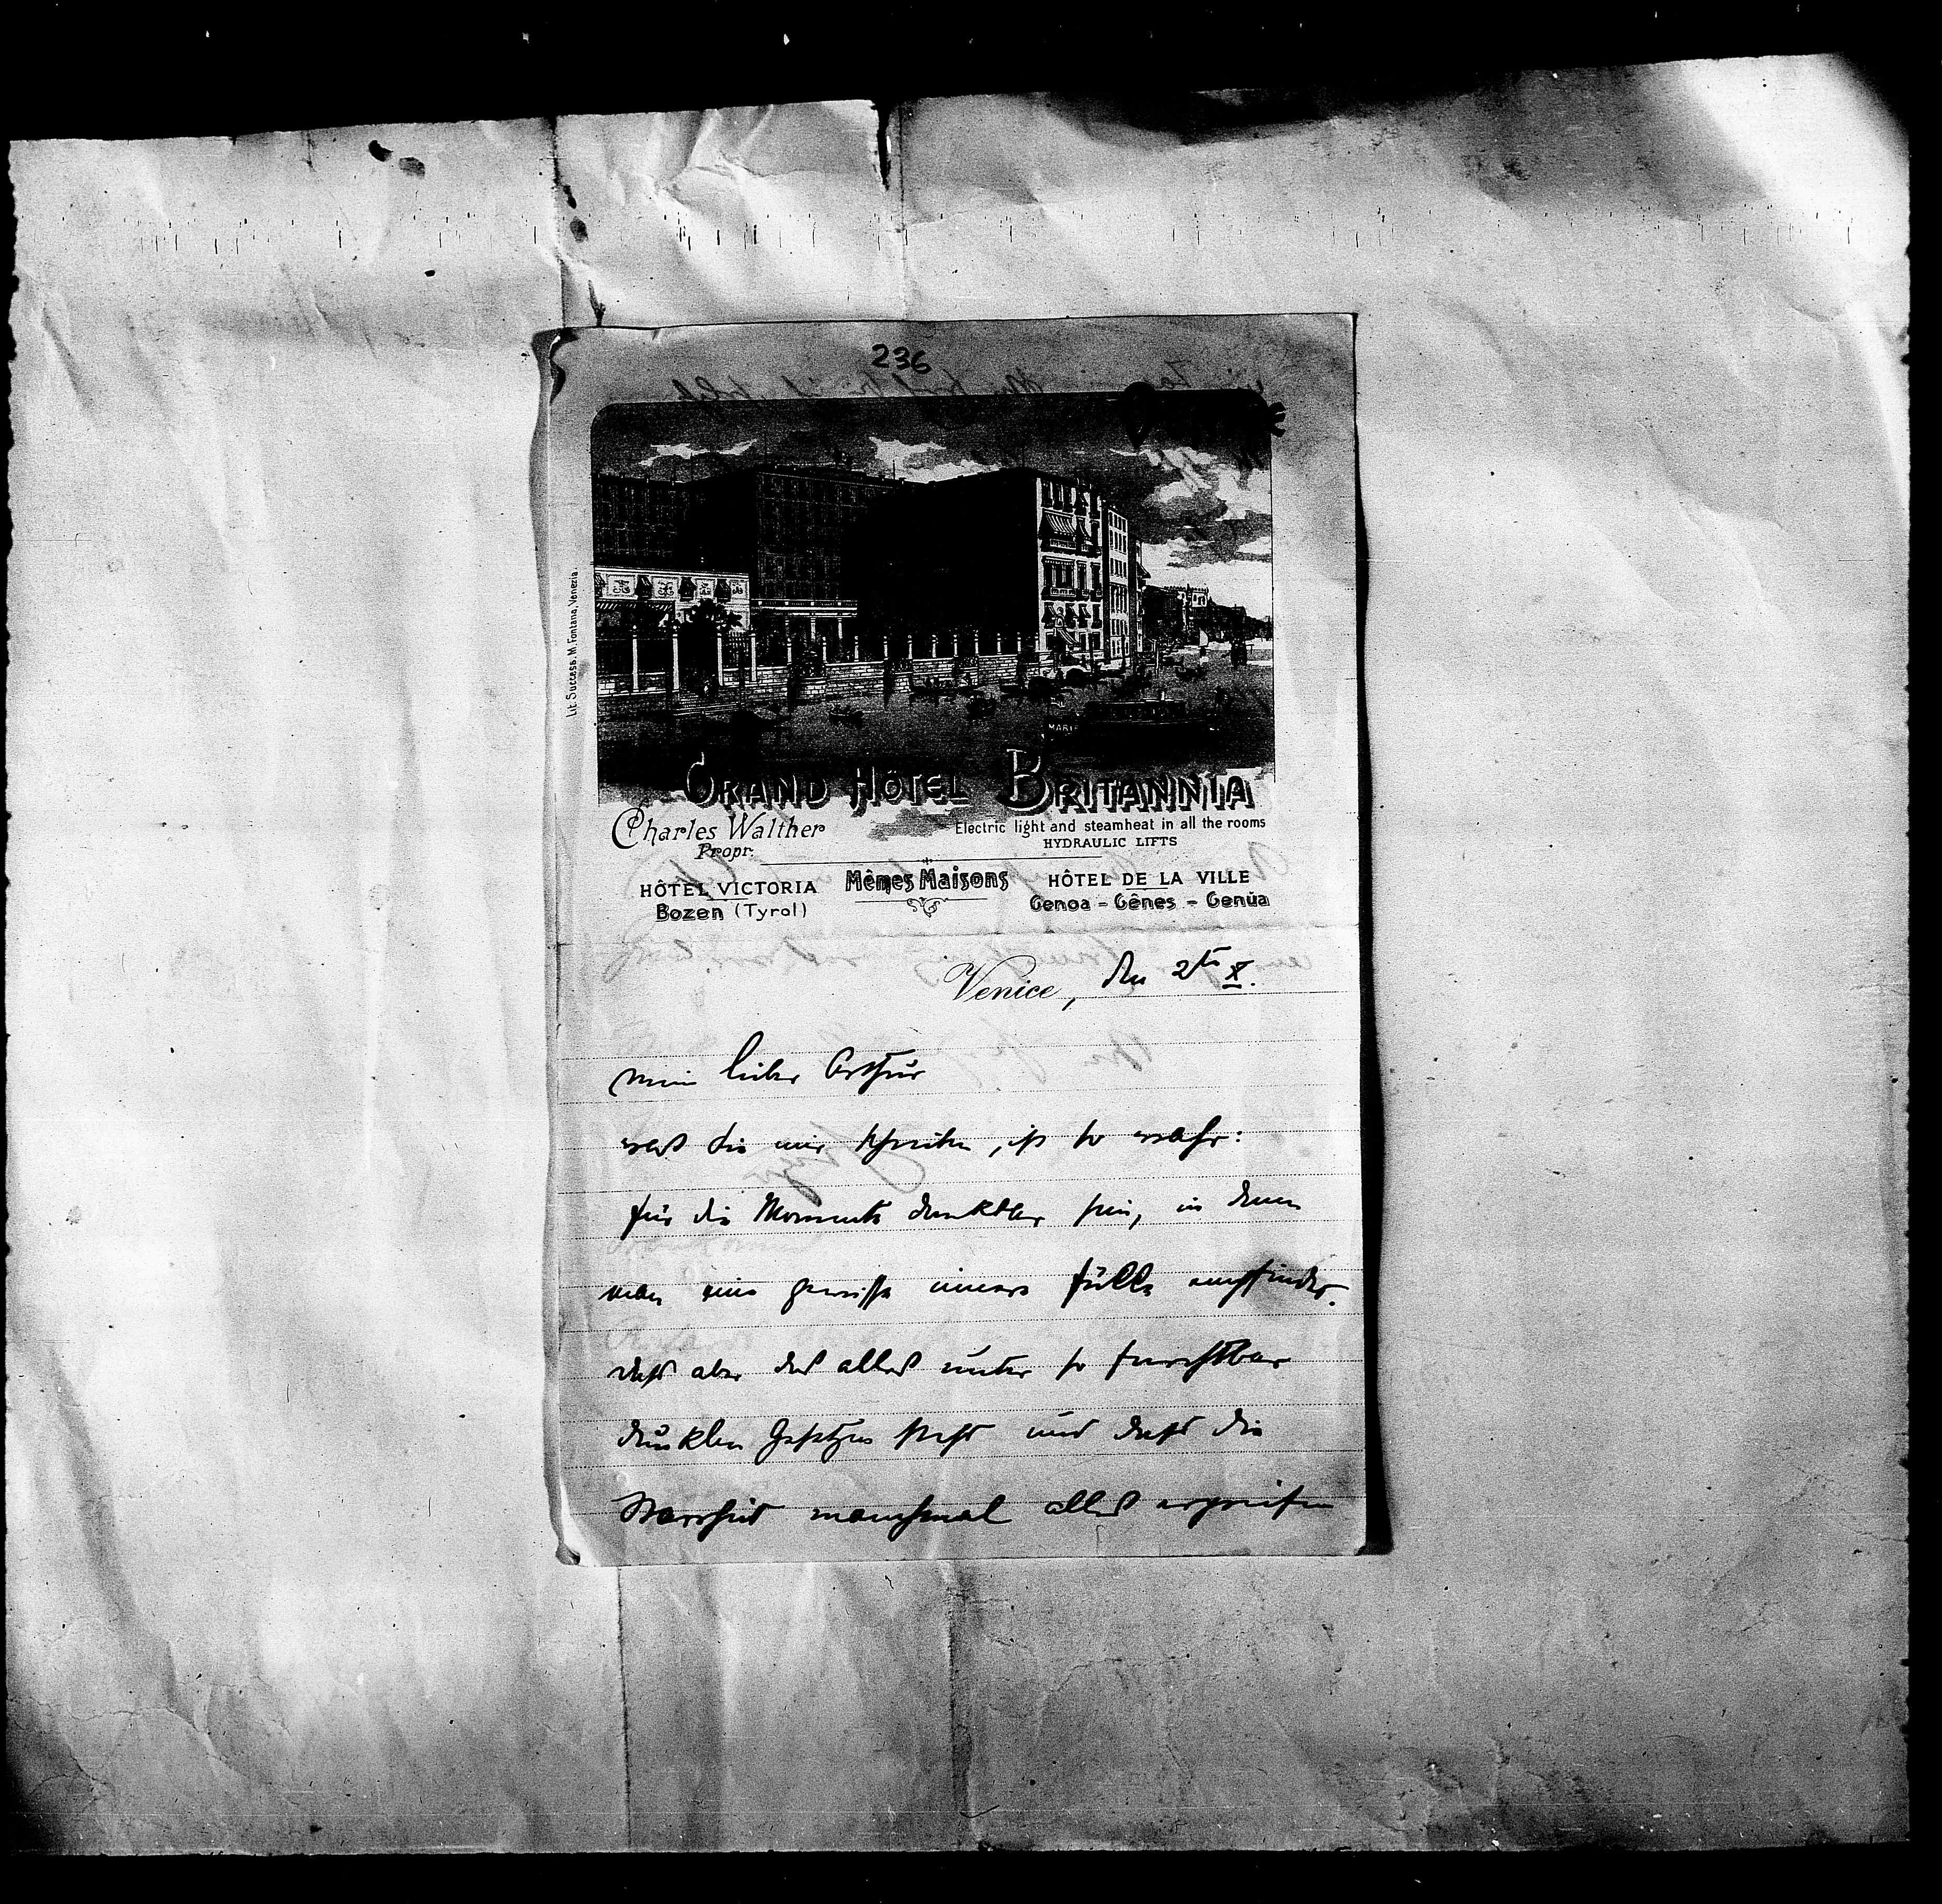 236
Lit. Success. M. Fontana, Venezia.
MARI
GRAND HÔTEL BRITANNIA
Charles Walther
Propr.
Electric light and steamheat in all the rooms
HYDRAULIC LIFTS
Mêmes Maisons
HÔTEL VICTORIA
Bozen (Tyrol)
HÔTEL DE LA VILLE
Genoa - Gênes - Genua
Venice, den 2ten X.
mein lieber Arthur
was Sie mir schreiben, ist so wahr:
für die Momente dankbar sein, in denen
man eine gewisse innere Fülle empfindet.
dass aber das alles unter so furchtbar
dunklen Gesetzen steht und dass die
Starrheit manchmal alles ergreifen